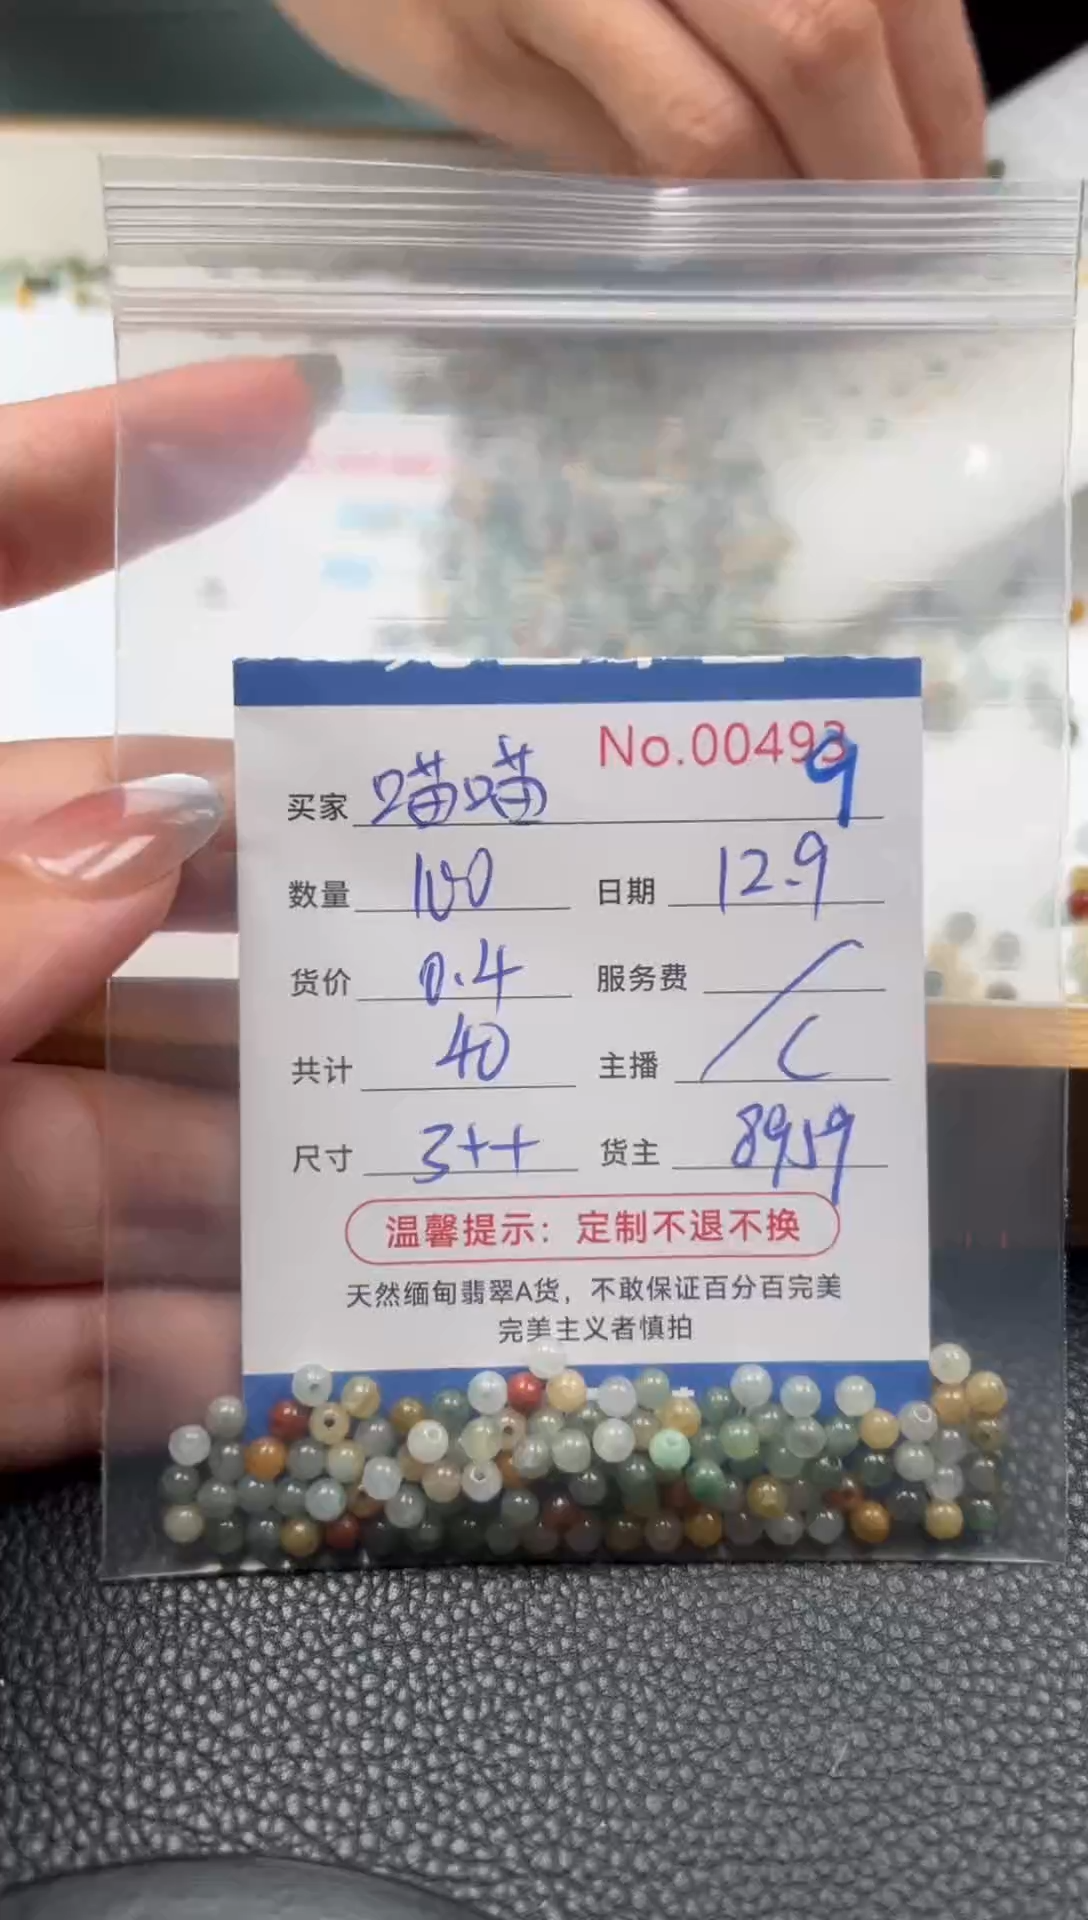 No.00493
9
买家 喵喵
数量 100 日期 12.9
货价 0.4 服务费 /
共计 40 主播 C
尺寸 3++ 货主 8959
温馨提示：定制不退不换
天然缅甸翡翠A货，不敢保证百分百完美
完美主义者慎拍